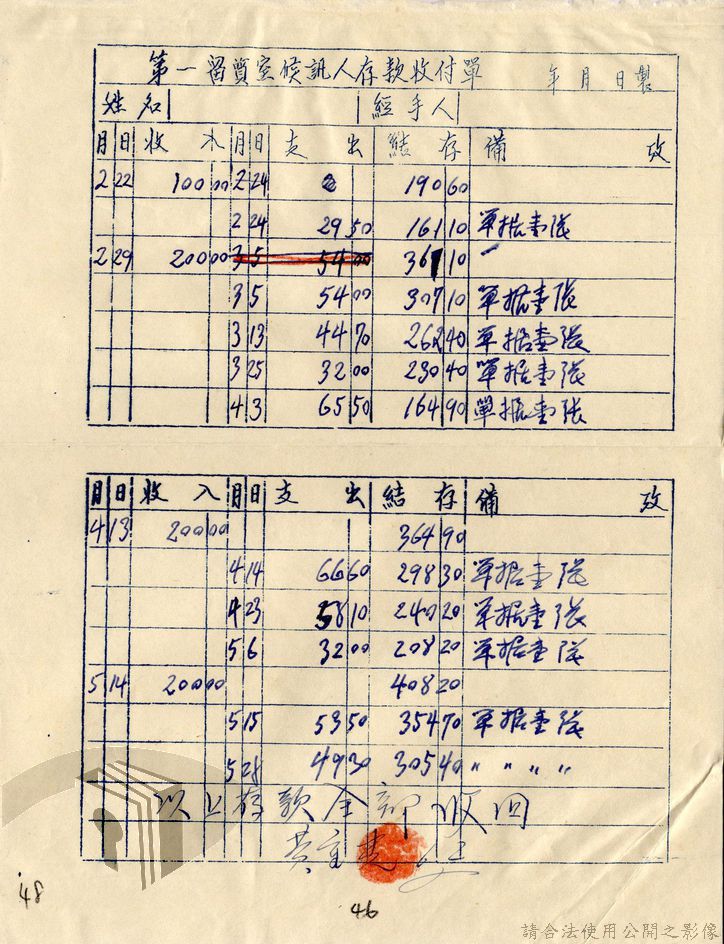 第一留質室候訊人存款收付單 年月日製
姓名 經手人
月日 收入 月日 支出 結存 備攷
2 22 100 00 2 24 190 60
2 24 29 50 161 10 單据壹張
2 29 200 00 3 5 54 00 361 10 〃
3 5 54 00 307 10 單据壹張
3 13 44 70 262 40 單据壹張
3 25 32 00 230 40 單据壹張
4 3 65 50 164 90 單据壹張
月日 收入 月日 支出 結存 備攷
4 13 200 00 364 90
4 14 66 60 298 30 單据壹張
4 23 58 10 240 20 單据壹張
5 6 32 00 208 20 單据壹張
5 14 200 00 408 20
5 15 53 50 354 70 單据壹張
5 28 49 30 305 40 〃 〃 〃 〃
以上存款全部收回
黃
48
46
請合法使用公開之影像